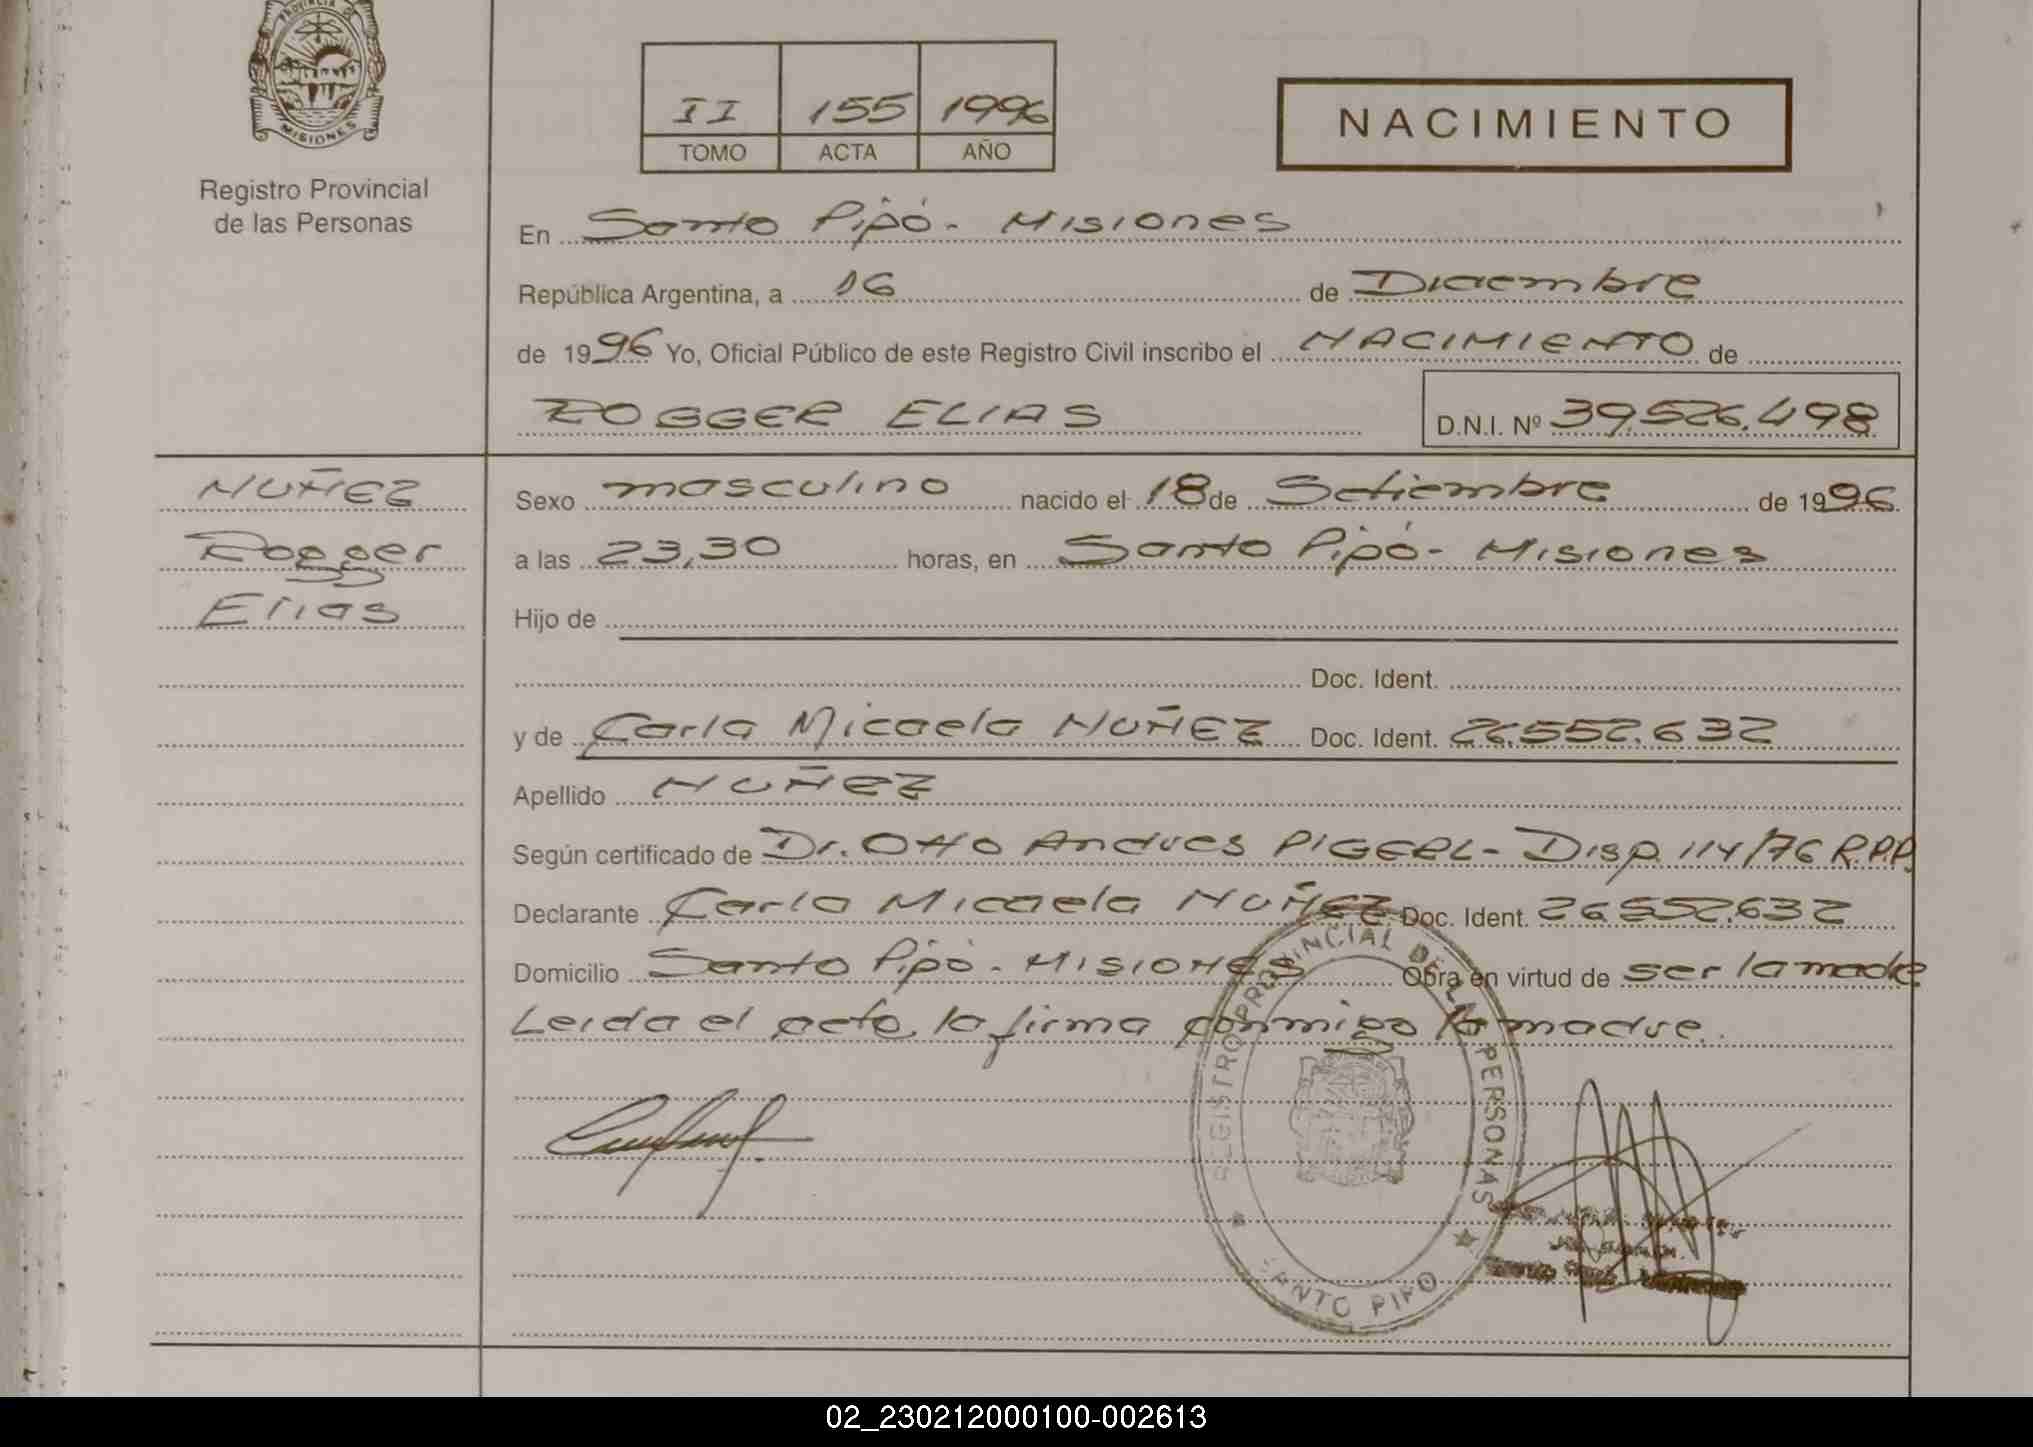 PROVINCIA DE
MISIONES
Registro Provincial
de las Personas
II 155 1996
TOMO ACTA AÑO
NACIMIENTO
En Santo Pipó - Misiones
República Argentina, a 16 de Diciembre
de 1996 Yo, Oficial Público de este Registro Civil inscribo el NACIMIENTO de
ROGGER ELIAS D.N.I. Nº 39.526.498
NUÑEZ
Rogger
Elias
Sexo masculino nacido el 18 de Setiembre de 1996
a las 23,30 horas, en Santo Pipó - Misiones
Hijo de
Doc. Ident.
y de Carla Micaela NUÑEZ Doc. Ident. 26.552.632
Apellido NUÑEZ
Según certificado de Dr. Otto Andres PIGERL - Disp. 114/76 R.P.P.
Declarante Carla Micaela NUÑEZ Doc. Ident. 26.552.632
Domicilio Santo Pipó - MISIONES Obra en virtud de ser la madre
Leida el acta, la firma conmigo la madre.
REGISTRO PROVINCIAL DE LAS PERSONAS
SANTO PIPO
02_230212000100-002613